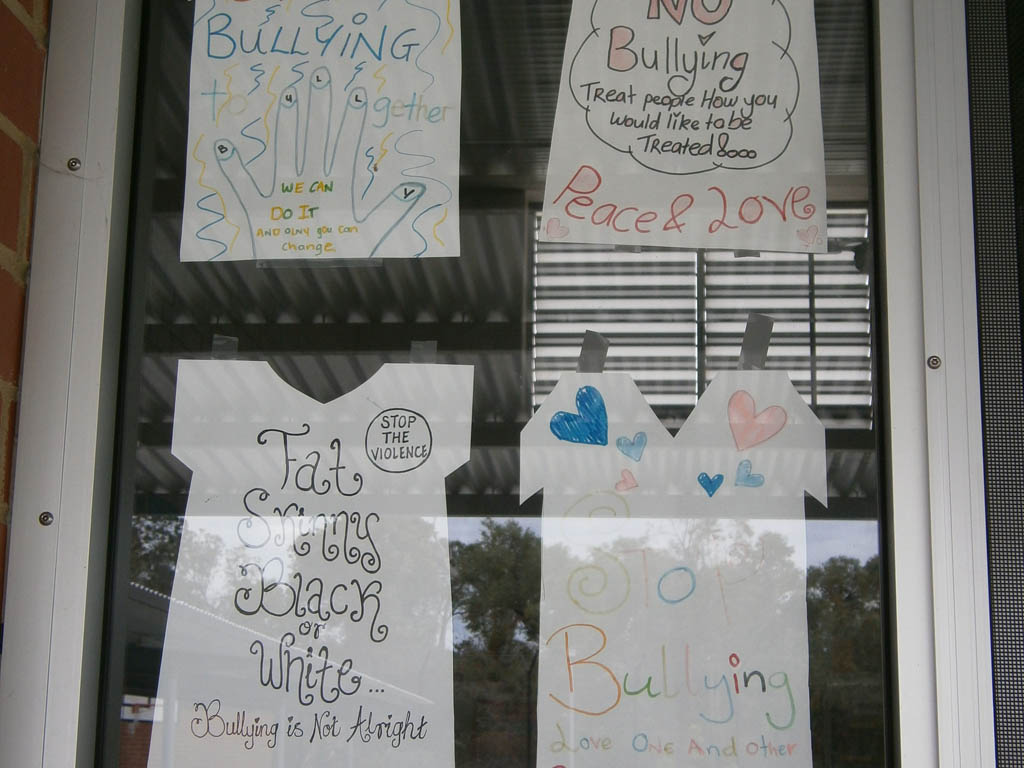 BULLYING
to gether
B
U
L
L
Y
WE CAN
DO IT
AND OLNY you Can
change
NO
Bullying
Treat people How you
would like to be
Treated
Peace & Love
STOP
THE
VIOLENCE
Fat
Skinny
Black
or
White...
Bullying is Not Alright
Stop
Bullying
Love One And other